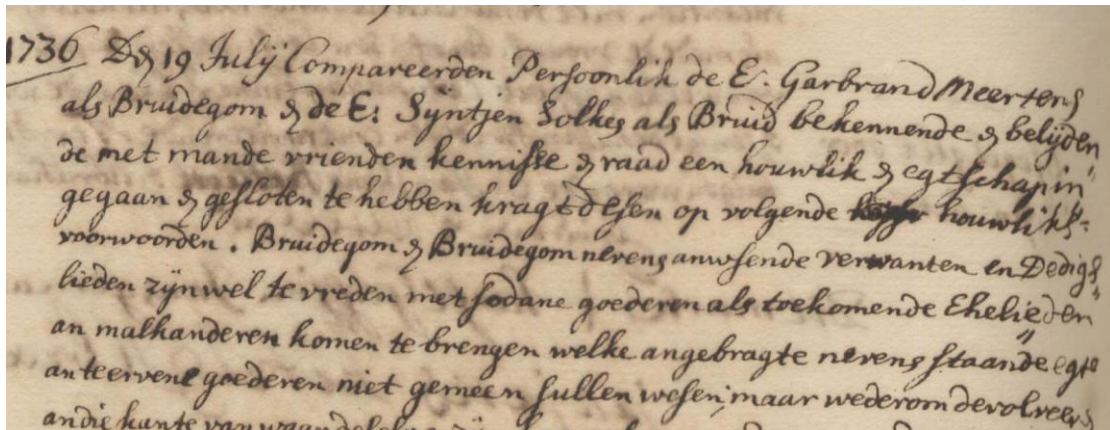 1736 Den 19 Julij Compareerden Persoonlik de E. Garbrand Meertens
als Bruidegom en de E: Sijntjen Solkes als Bruid bekennende en belijden
de met mande vrienden kennisse en raad een houwlik en egtschap in"
gegaan en gesloten te hebben kragt desen op volgende houwliks-
voorwoorden. Bruidegom en Bruidegom nevens anwesende verwanten en Dedigs"
lieden zijn wel te vreden met sodane goederen als toekomende Ehelieden
an malkanderen komen te brengen welke angebragte nevens staande egte
an te ervene goederen niet gemeen sullen wesen, maar wederom devolveren
an die kante van waar deselve